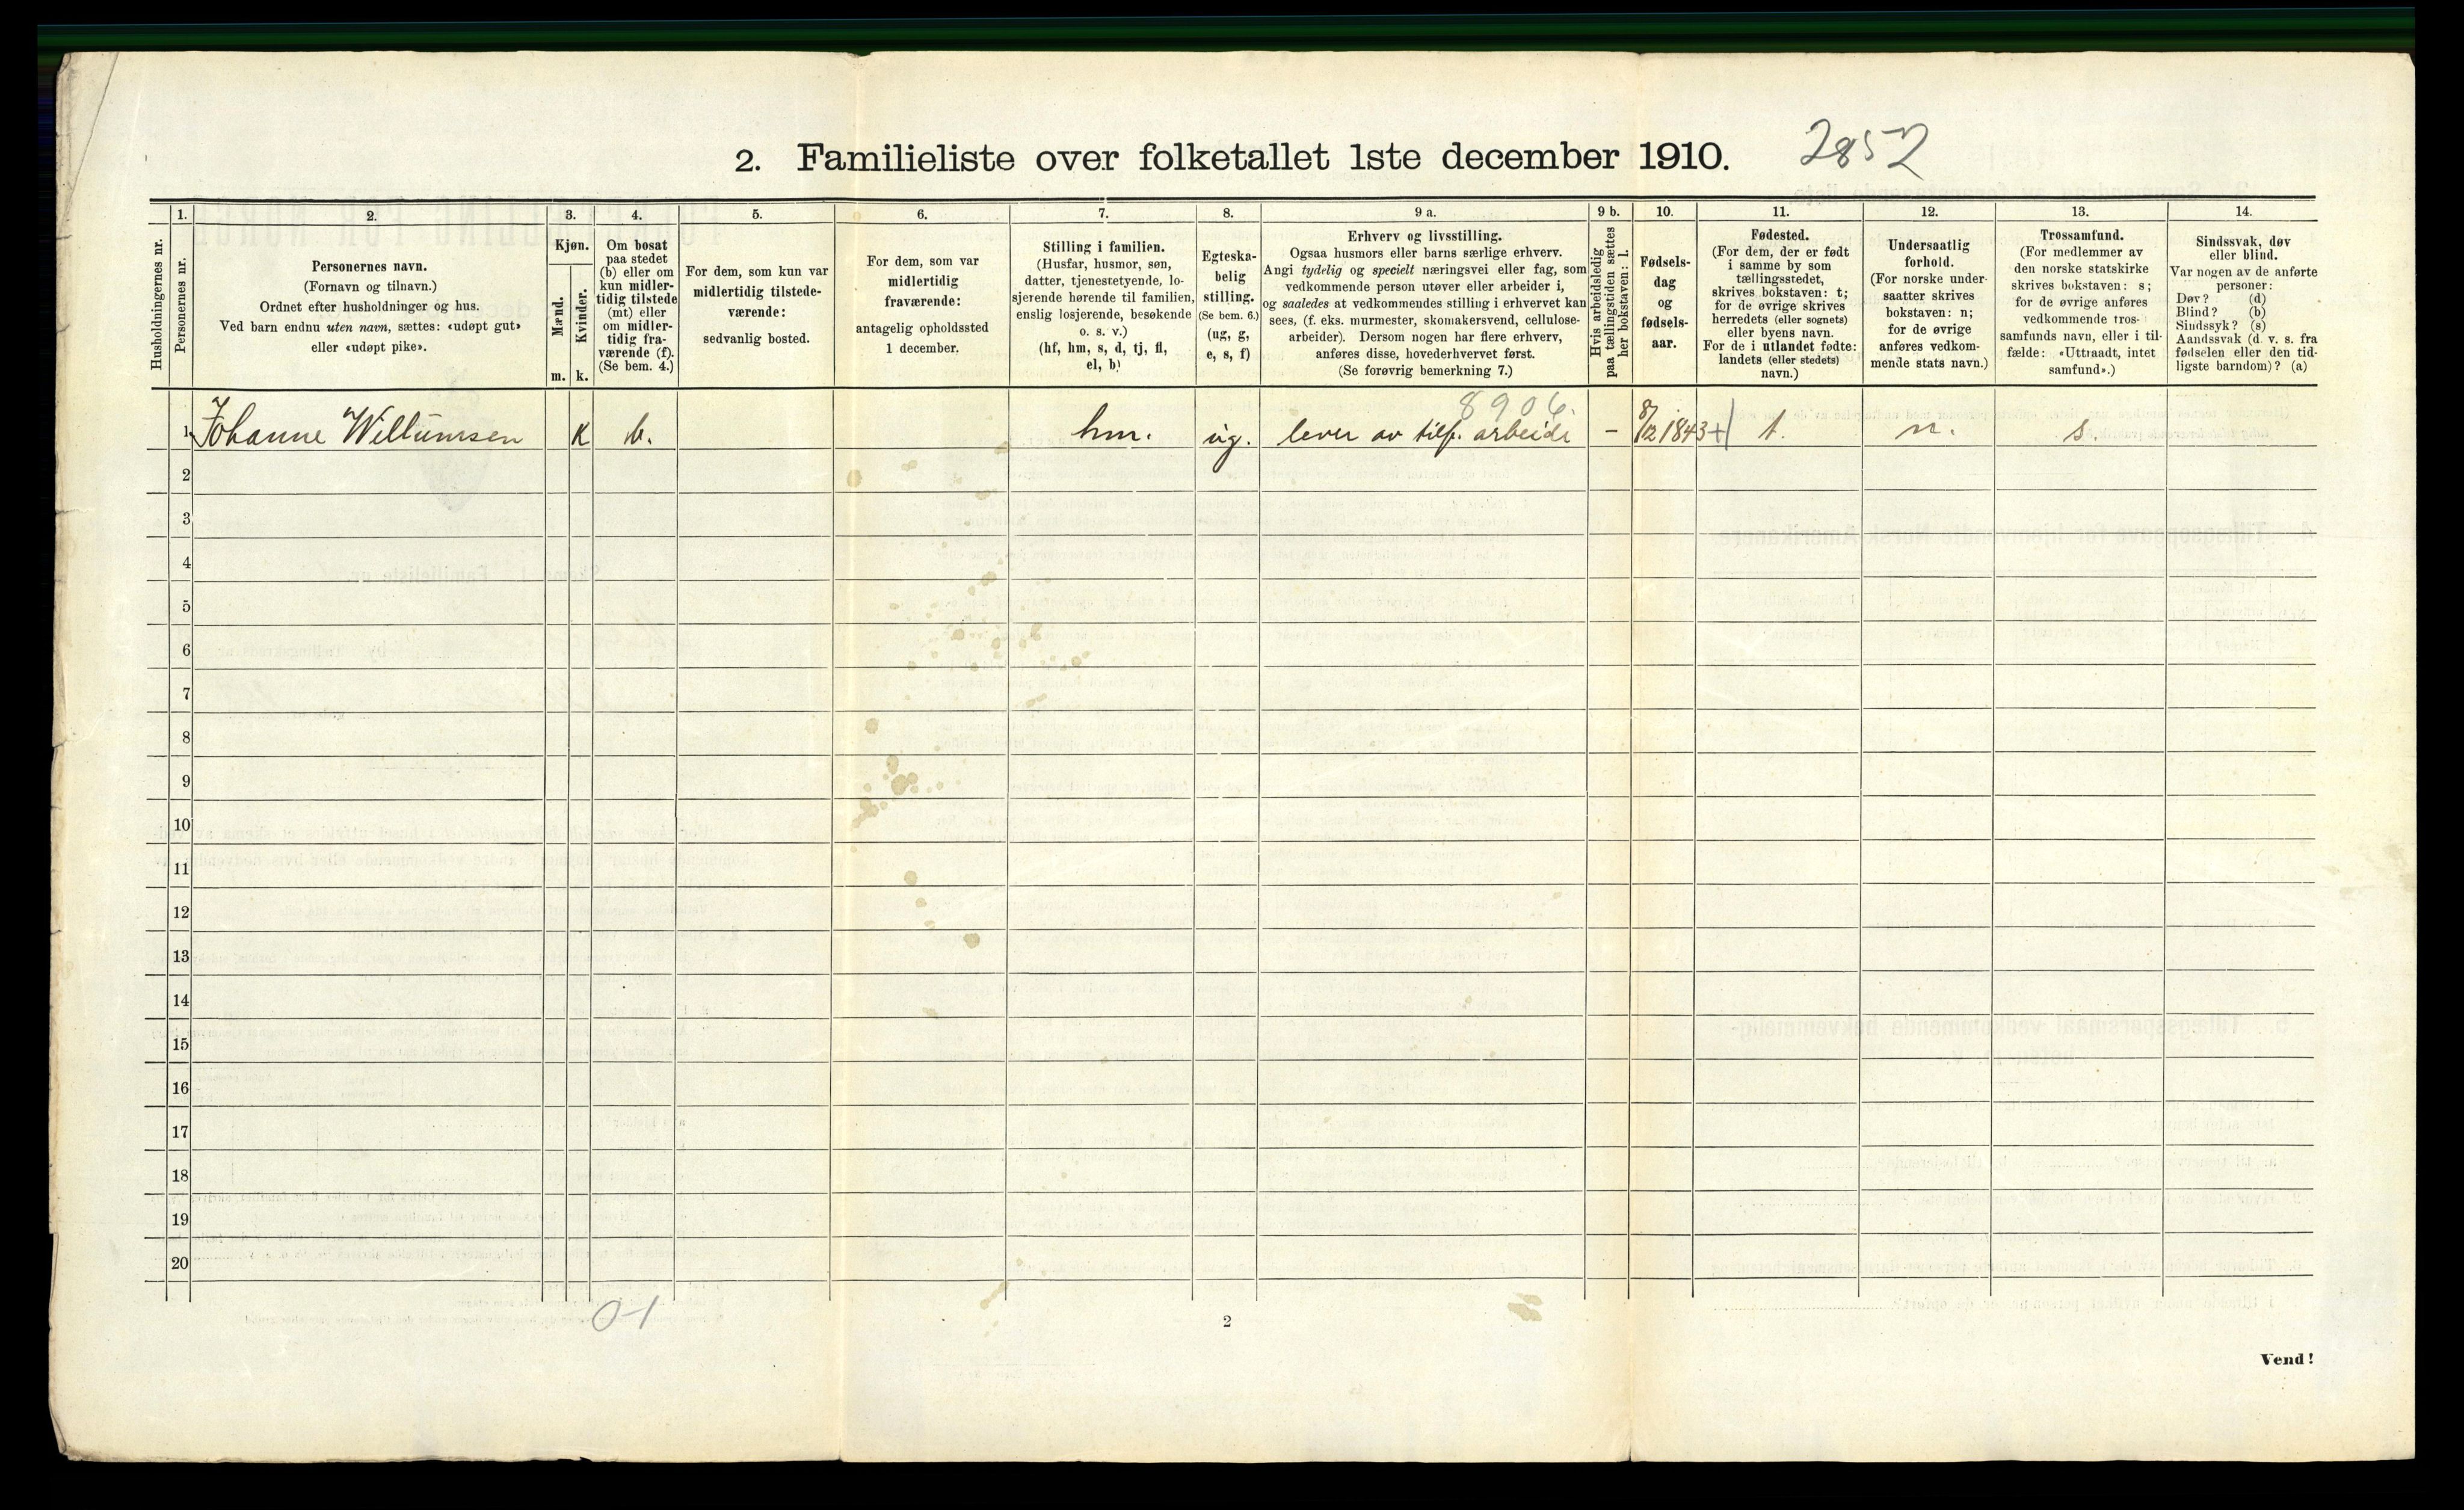 2. Familieliste over folketallet 1ste december 1910. 2852
1. 2. 3. 4. 5. 6. 7. 8. 9 a. 9 b. 10. 11. 12. 13. 14.
Husholdningernes nr.
Personernes nr.
Personernes navn.
(Fornavn og tilnavn.)
Ordnet efter husholdninger og hus.
Ved barn endnu uten navn, sættes: «udøpt gut»
eller «udøpt pike».
Kjøn.
Mænd.
m.
Kvinder.
k.
Om bosat
paa stedet
(b) eller om
kun midler-
tidig tilstede
(mt) eller
om midler-
tidig fra-
værende (f).
(Se bem. 4.)
For dem, som kun var
midlertidig tilstede-
værende:
sedvanlig bosted.
For dem, som var
midlertidig
fraværende:
antagelig opholdssted
1 december.
Stilling i familien.
(Husfar, husmor, søn,
datter, tjenestetyende, lo-
sjerende hørende til familien,
enslig losjerende, besøkende
o. s. v.)
(hf, hm, s, d, tj, fl,
el, b)
Egteska-
belig
stilling.
(Se bem. 6.)
(ug, g,
e, s, f)
Erhverv og livsstilling.
Ogsaa husmors eller barns særlige erhverv.
Angi tydelig og specielt næringsvei eller fag, som
vedkommende person utøver eller arbeider i,
og saaledes at vedkommendes stilling i erhvervet kan
sees, (f. eks. murmester, skomakersvend, cellulose-
arbeider). Dersom nogen har flere erhverv,
anføres disse, hovederhvervet først.
(Se forøvrig bemerkning 7.)
Hvis arbeidsledig
paa tællingstiden sættes
her bokstaven: l.
Fødsels-
dag
og
fødsels-
aar.
Fødested.
(For dem, der er født
i samme by som
tællingsstedet,
skrives bokstaven: t;
for de øvrige skrives
herredets (eller sognets)
eller byens navn.
For de i utlandet fødte:
landets (eller stedets)
navn.)
Undersaatlig
forhold.
(For norske under-
saatter skrives
bokstaven: n;
for de øvrige
anføres vedkom-
mende stats navn.)
Trossamfund.
(For medlemmer av
den norske statskirke
skrives bokstaven: s;
for de øvrige anføres
vedkommende tros-
samfunds navn, eller i til-
fælde: «Uttraadt, intet
samfund».)
Sindssvak, døv
eller blind.
Var nogen av de anførte
personer:
Døv? (d)
Blind? (b)
Sindssyk? (s)
Aandssvak (d. v. s. fra
fødselen eller den tid-
ligste barndom)? (a)
8906.
1 Johanne Willumsen K b. hm. ug. lever av tilf. arbeide - 8/12 1843 + t. n. s.
2
3
4
5
6
7
8
9
10
11
12
13
14
15
16
17
18
19
20
0-1
2
Vend!